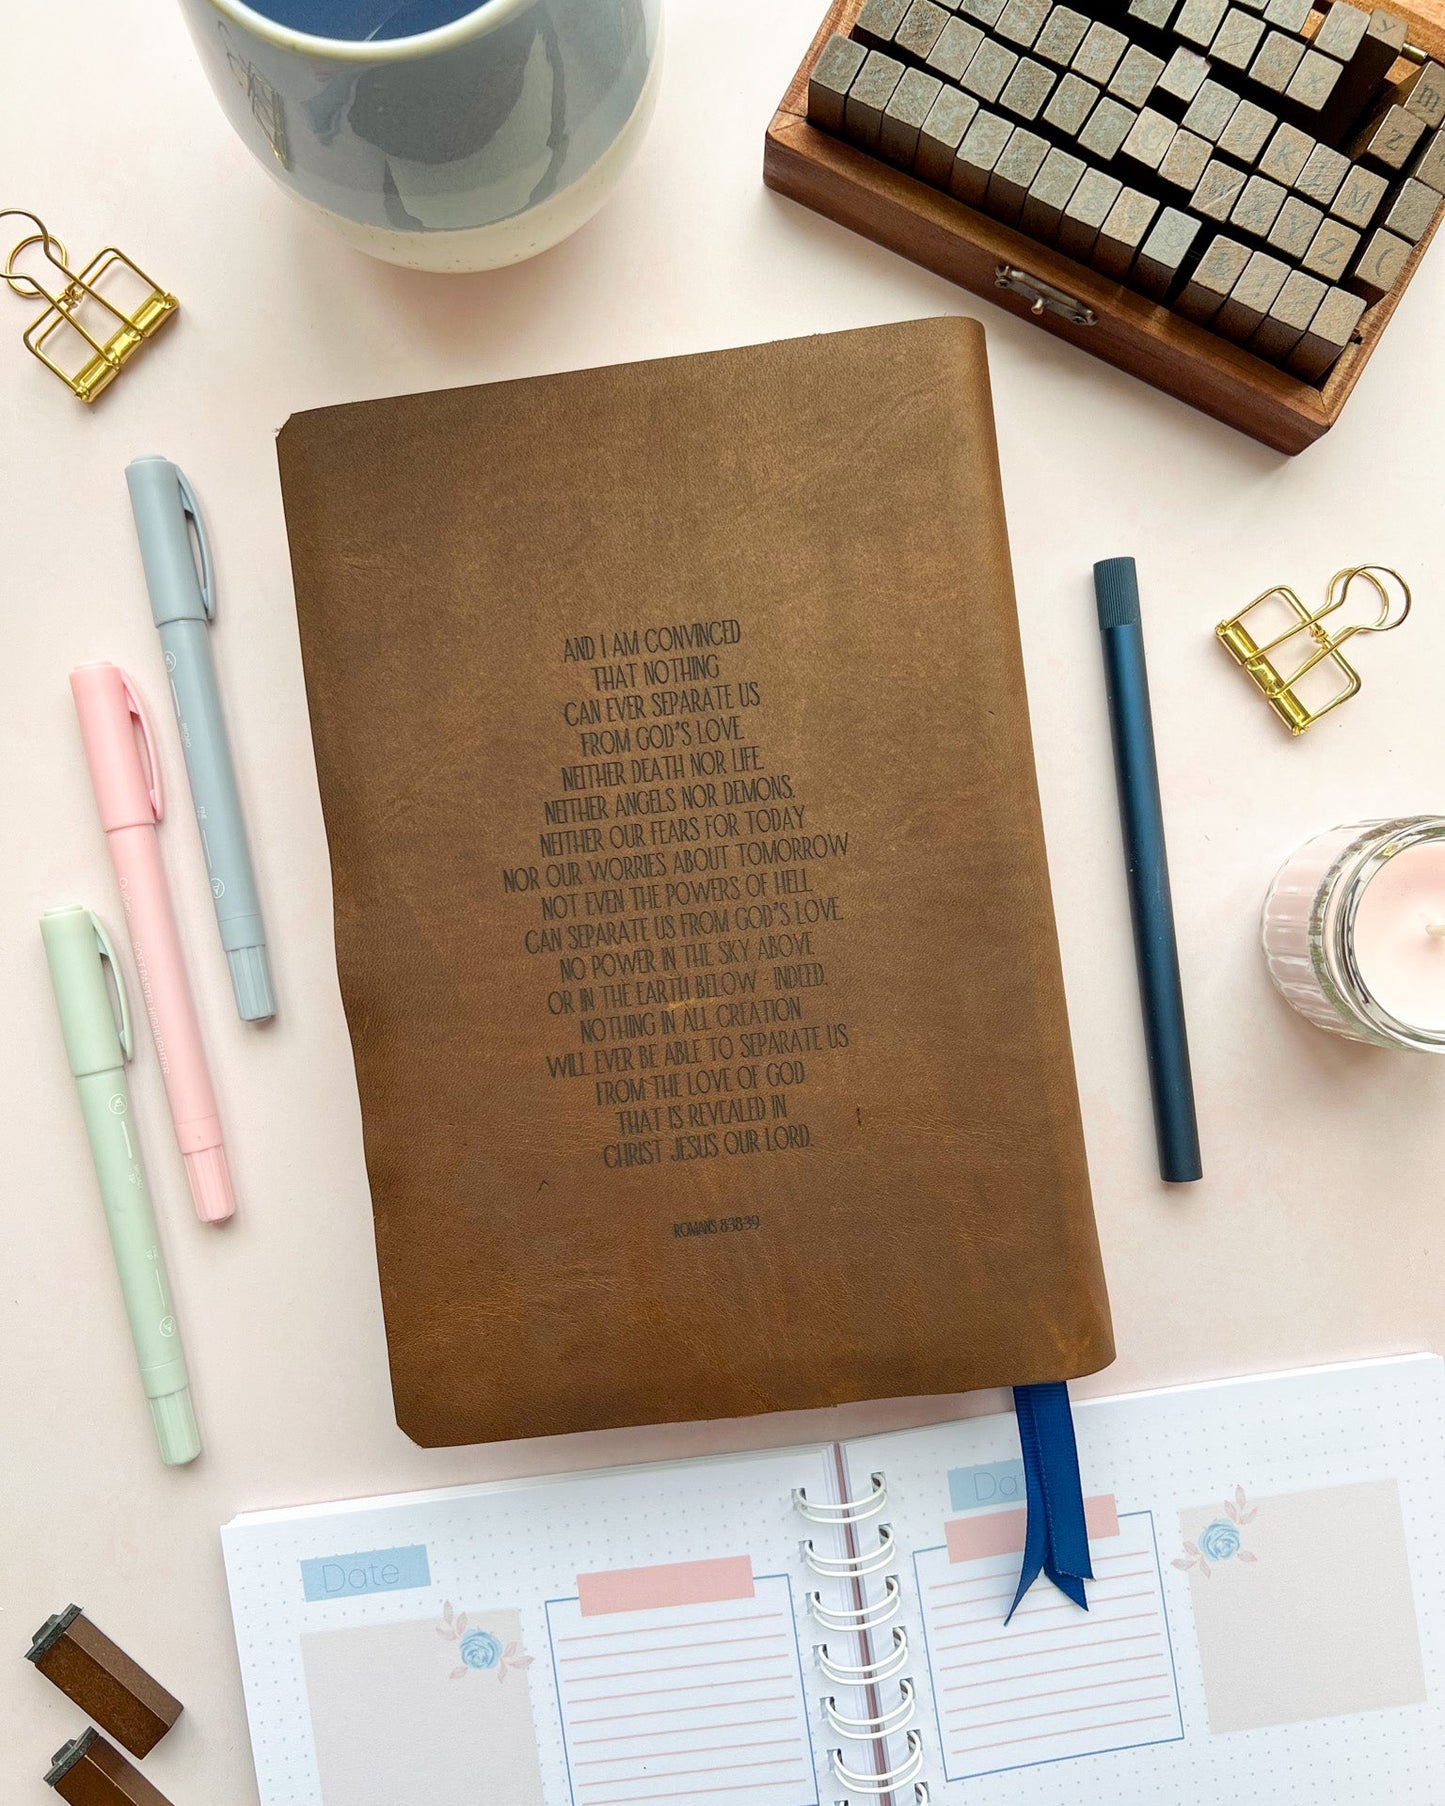 AND I AM CONVINCED
THAT NOTHING
CAN EVER SEPARATE US
FROM GOD'S LOVE.
NEITHER DEATH NOR LIFE,
NEITHER ANGELS NOR DEMONS,
NEITHER OUR FEARS FOR TODAY
NOR OUR WORRIES ABOUT TOMORROW
NOT EVEN THE POWERS OF HELL
CAN SEPARATE US FROM GOD'S LOVE.
NO POWER IN THE SKY ABOVE
OR IN THE EARTH BELOW - INDEED,
NOTHING IN ALL CREATION
WILL EVER BE ABLE TO SEPARATE US
FROM THE LOVE OF GOD
THAT IS REVEALED IN
CHRIST JESUS OUR LORD.
ROMANS 8:38-39
SOFT PASTEL HIGHLIGHTER
Date
Da
m
Z
M
X
Y
Z
(